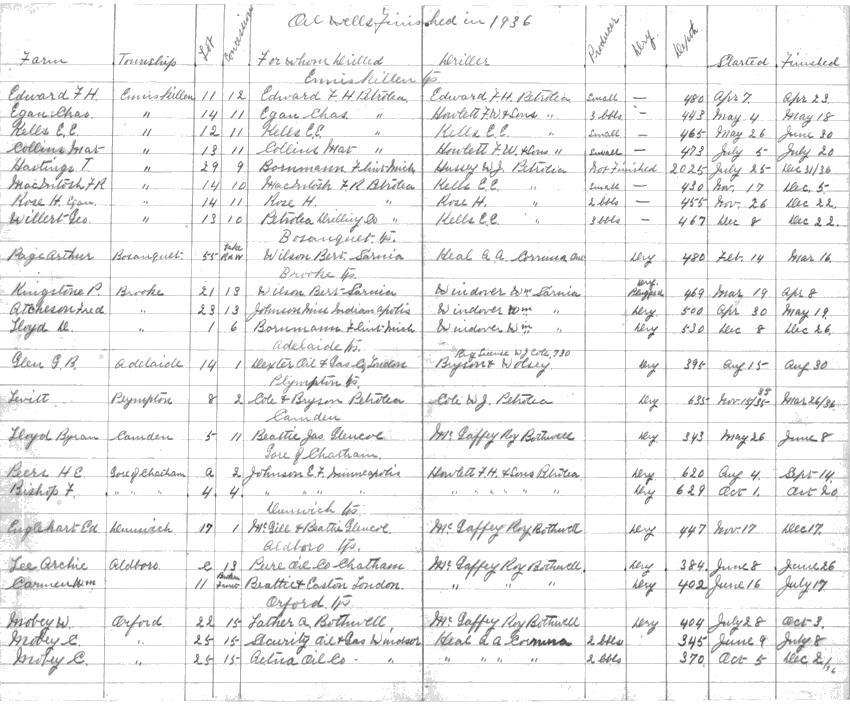 Oil Wells Finished in 1936
Farm Township Lot Concession For whom Drilled Driller Producer Dry Depth Started Finished
Enniskillen Tp.
Edward F. H. Enniskillen 11 12 Edward F. H. Petrolea Edward F. H. Petrolea Small — 480 Apr 7. Apr 23.
Egan Chas. " 14 11 Egan Chas. " Howlett F. W. & Sons " 3 bbls — 443 May 4 May 18
Kells E. C. " 12 11 Kells E. C. " Kells E. C. " Small — 465 May 26 June 30
Collins Mat " 13 11 Collins Mat " Howlett F. W. & Sons " Small — 473 July 5 July 20
Hastings T. " 29 9 Bornmann Flint Mich Hussey W. J. Petrolea Not Finished 2025 July 25 Dec 31/36
MacIntosh F. R " 14 10 MacIntosh F. R. Petrolea Kells E. C. " Small — 430 Nov. 17 Dec. 5
Rose H. Egan. " 14 11 Rose H. " Rose H. " 2 bbls — 455 Nov. 26 Dec 22.
Willert Geo. " 13 10 Petrolea Drilling Co " Kells E. C. " 3 bbls — 467 Dec 8 Dec 22.
Bosanquet Tp.
Page Arthur Bosanquet 55 Lake Road W Wilson Bert. Sarnia Heal A. A. Corunna Ont Dry 480 Feb. 14 Mar 16.
Brooke Tp.
Kingstone P. Brooke 21 13 Wilson Bert. Sarnia Windover Wm Sarnia Dry. Plugged 469 Mar 19 Apr 8
Atcheson Fred " 23 13 Johnson Miss Indianapolis Windover Wm " Dry 500 Apr 30 May 19.
Lloyd D. " 1 6 Bornmann Flint Mich Windover Wm " Dry 530 Dec 8 Dec 26.
Adelaide Tp.
Glen G. B. Adelaide 14 1 Dexter Oil & Gas Co London Bryson & Wolsey Dry 395 Aug 15 Aug 30
Plympton Tp.
Levitt Plympton 8 2 Cole & Bryson Petrolea Cole W. J. Petrolea Dry 635 Nov. 15/35 Mar 26/36
Camden
Lloyd Byran Camden 5 11 Beattie Jas. Glencoe Mc Gaffey Roy Bothwell Dry 343 May 26 June 8
Gore of Chatham.
Peers H C. Gore of Chatham A 2 Johnson E. F. Minneapolis Howlett F. H. & Sons Petrolea Dry 620 Aug 4. Sept 14.
Bishop F. " " " 4. 4. " " " " " " " " Dry 629 Oct 1. Oct 20.
Dunwich Tp.
Englehart Ed Dunwich 17 1 Mc Gill & Beattie Glencoe Mc Gaffey Roy Bothwell Dry 447 Nov. 17 Dec 17.
Aldboro Tp.
Lee Archie Aldboro. C 13 Pure Oil Co Chatham Mc Gaffey Roy Bothwell. Dry 384 June 8 June 26
Carmen Wm 11 Broken Front Beattie & Easton London. " " " Dry 402 June 16 July 17.
Orford Tp
Mobey W. Orford 22 15 Lather A. Bothwell. Mc Gaffey Roy Bothwell Dry 404 July 28 Oct 3.
Mobey C. " 25 15 Security Oil & Gas Windsor Heal A. A. Corunna 2 bbls 345 June 9 July 8
Mobey C. " 25 15 Aetna Oil Co - " " " " " 2 bbls 370. Oct 5 Dec 2/36